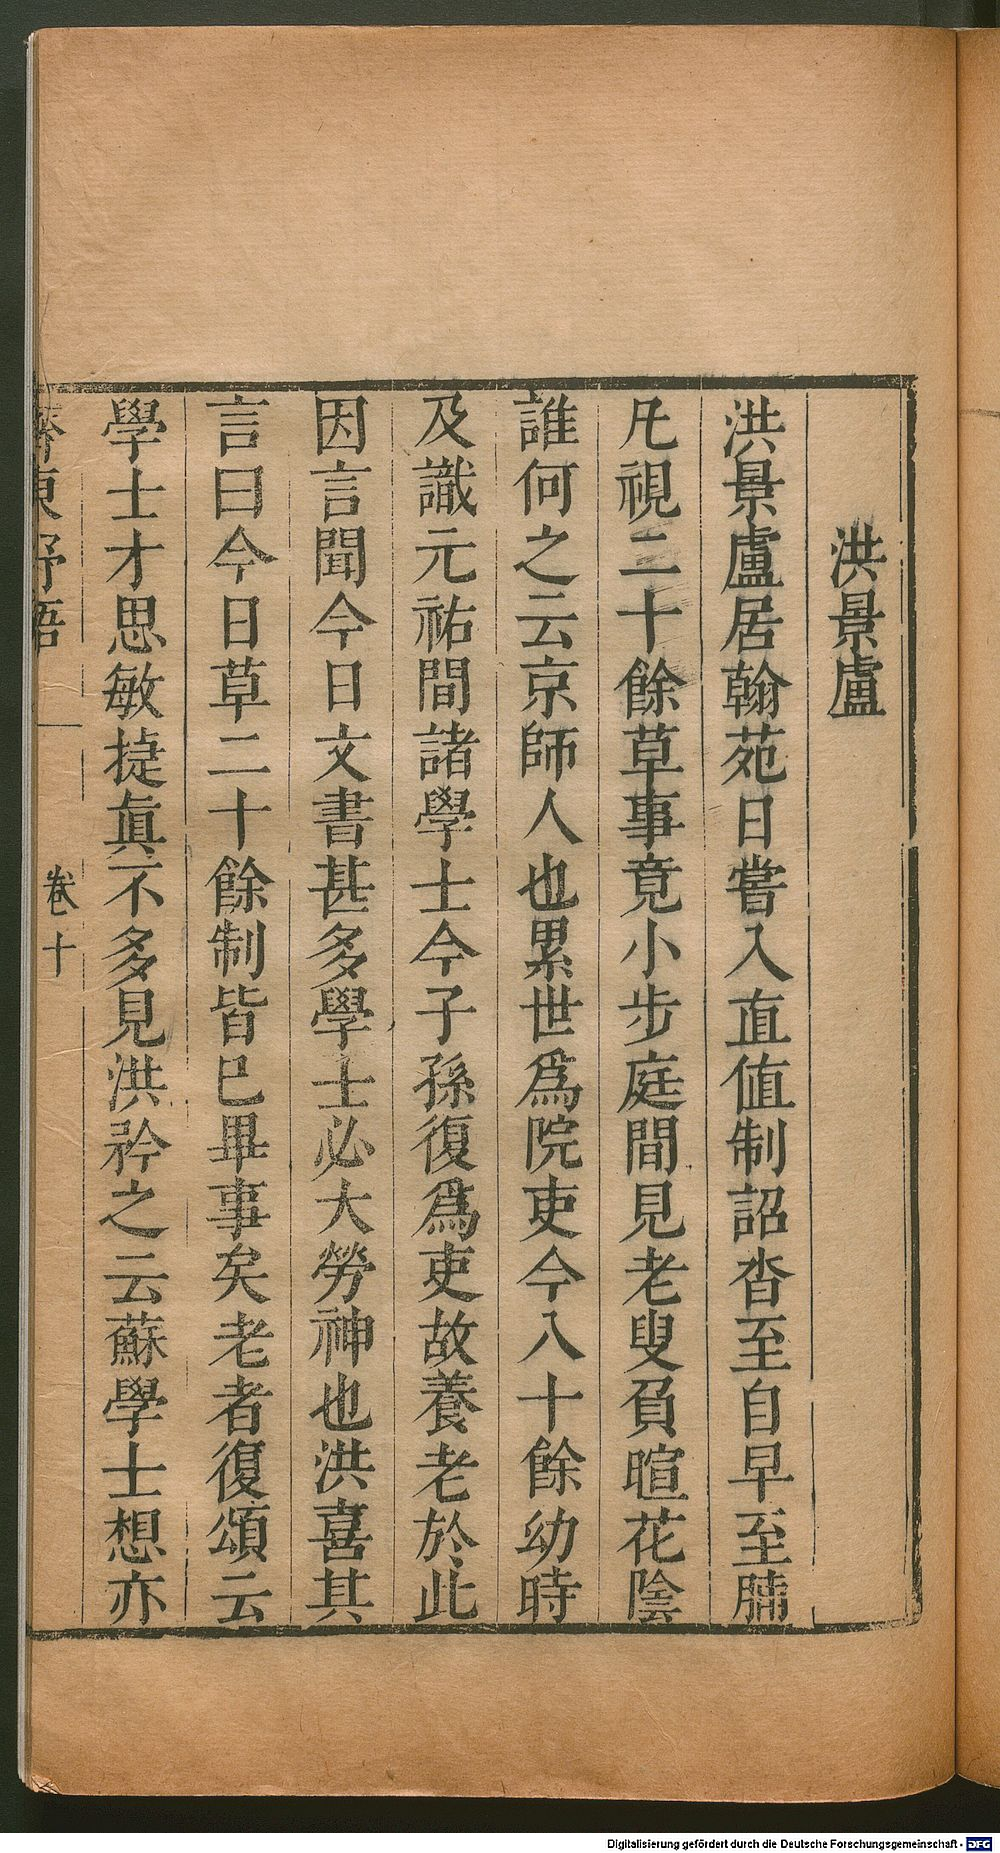 洪景盧
洪景盧居翰苑日嘗入直値制詔沓至自早至晡
凡視二十餘草事竟小步庭間見老叟負暄花陰
誰何之云京師人也累世爲院吏今八十餘幼時
及識元祐間諸學士今子孫復爲吏故養老於此
因言聞今日文書甚多學士必大勞神也洪喜其
言曰今日草二十餘制皆已畢事矣老者復頌云
學士才思敏捷眞不多見洪矜之云蘇學士想亦
齊東野語 卷十
Digitalisierung gefördert durch die Deutsche Forschungsgemeinschaft - DFG